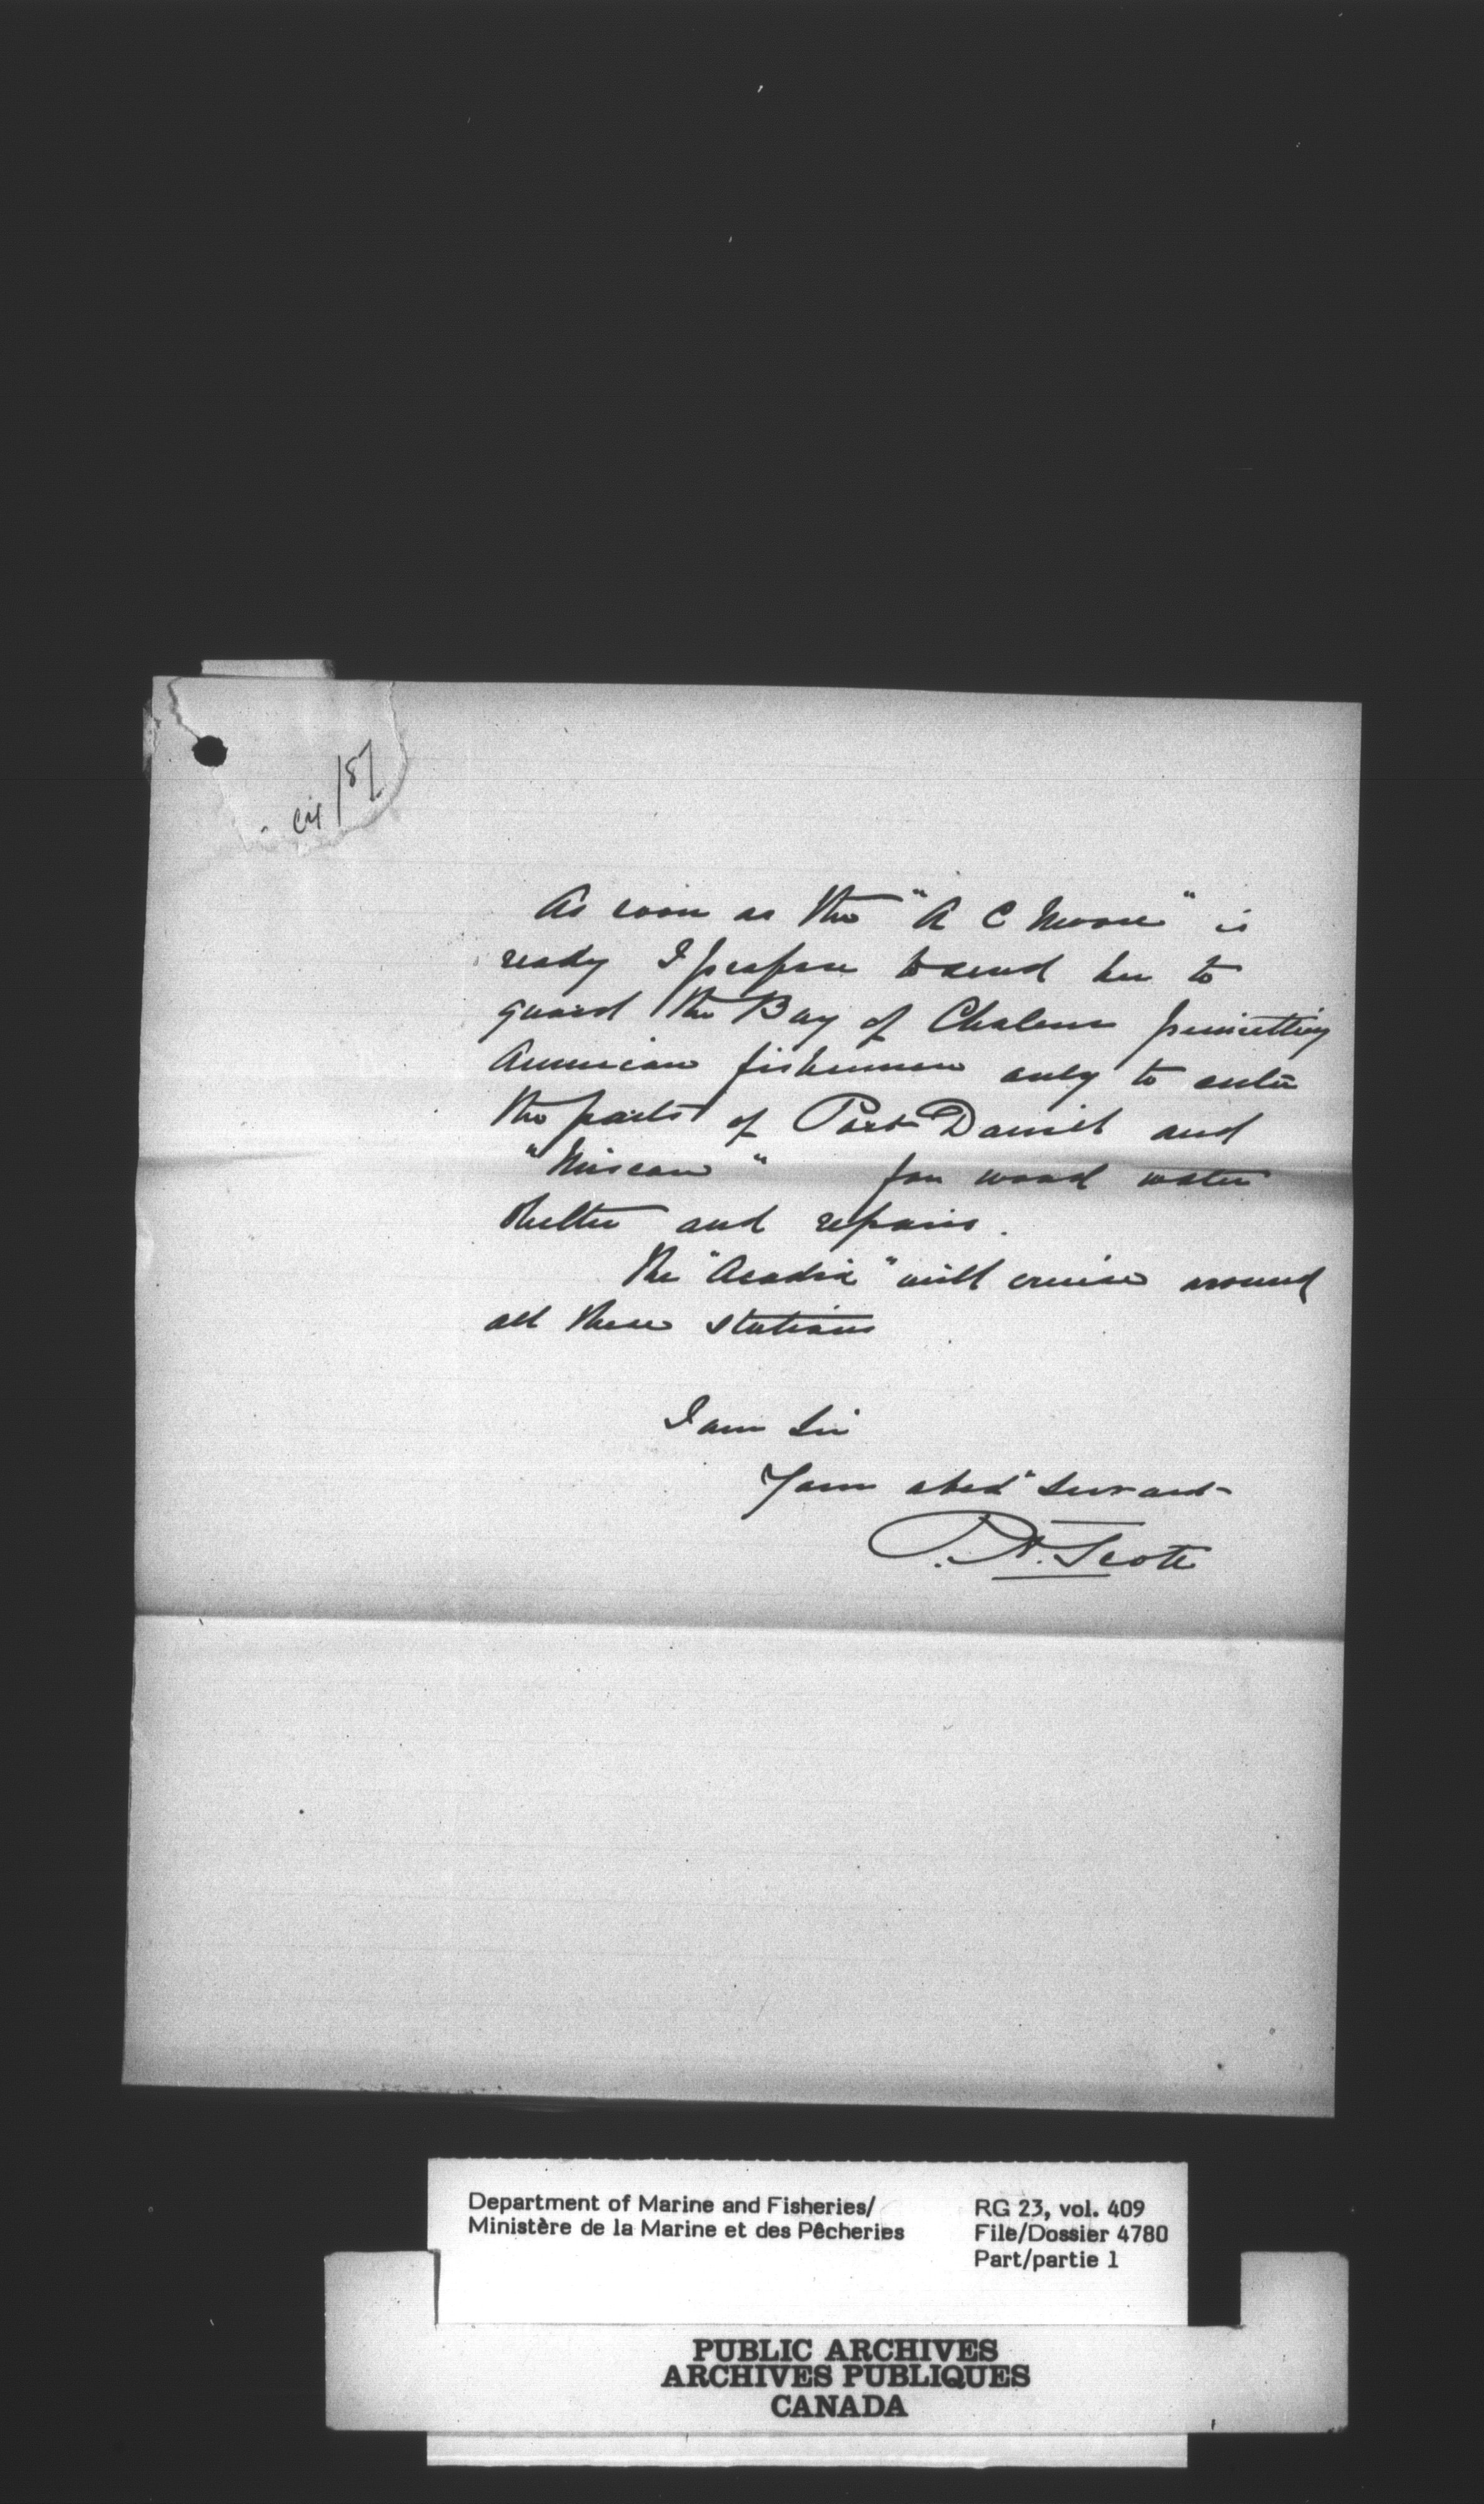 /87
As soon as the "A C Moore" is
ready I propose to send her to
guard the Bay of Chaleur permitting
American fishermen only to enter
the ports of Port Daniel and
"Miscou" for wood water
shelter and repairs.
The "Acadia" will cruise around
all these stations
I am Sir
Your obedt Servant
P. A. Scott
Department of Marine and Fisheries/
Ministère de la Marine et des Pêcheries
RG 23, vol. 409
File/Dossier 4780
Part/partie 1
PUBLIC ARCHIVES
ARCHIVES PUBLIQUES
CANADA